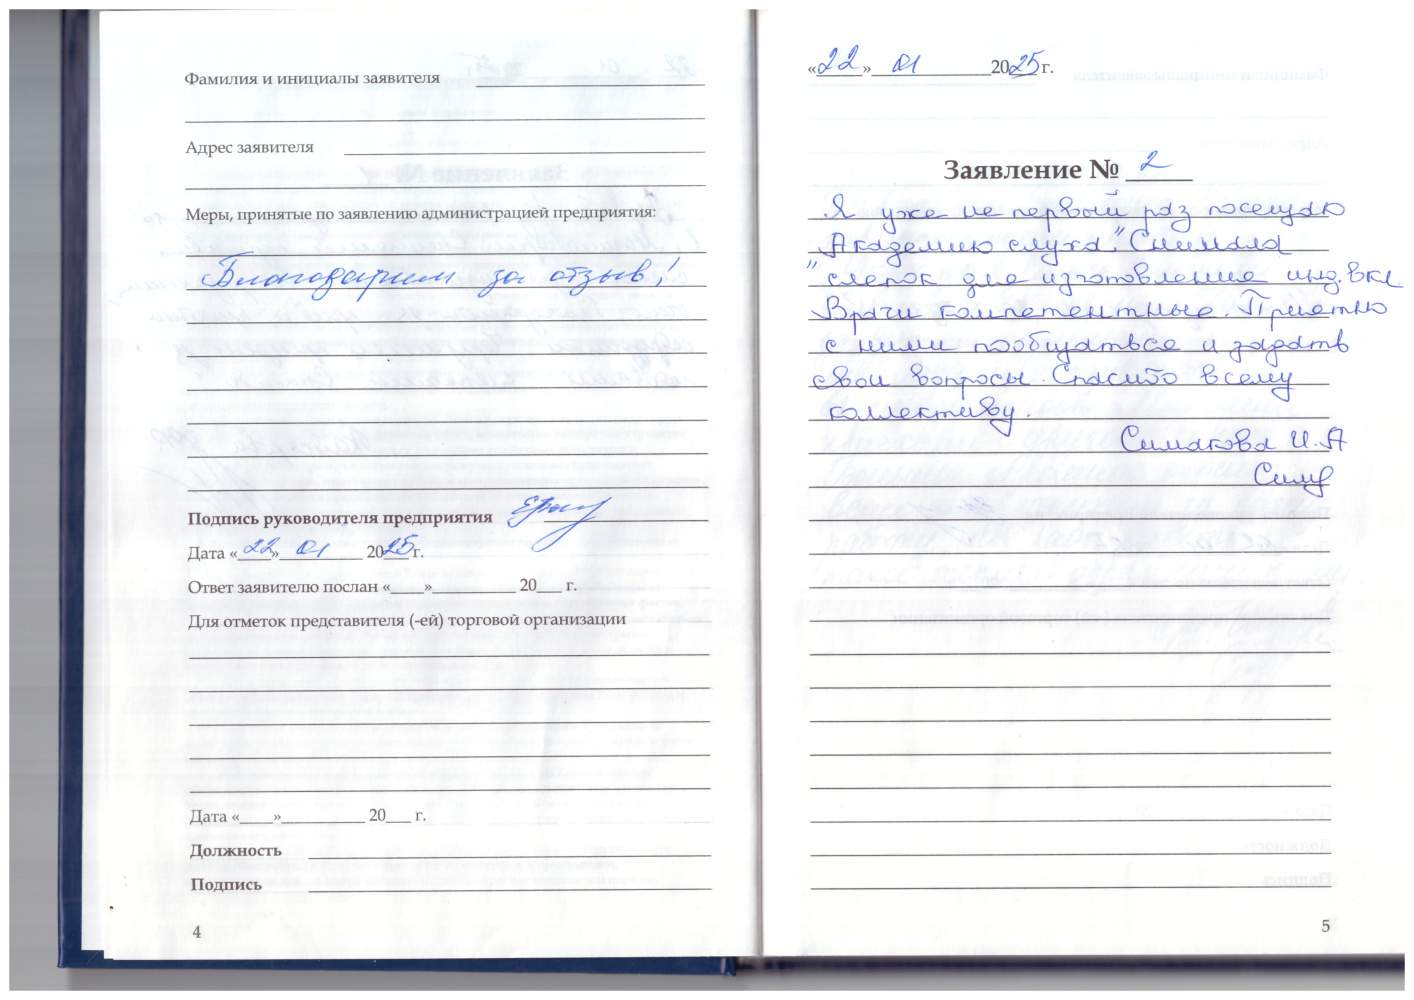 Фамилия и инициалы заявителя
Адрес заявителя
Меры, принятые по заявлению администрацией предприятия:
Благодарим за отзыв!
Подпись руководителя предприятия
Дата «22» 01 2025 г.
Ответ заявителю послан «____»__________ 20___ г.
Для отметок представителя (-ей) торговой организации
Дата «____»__________ 20___ г.
Должность
Подпись
4
«22» 01 2025 г.
Заявление № 2
Я уже не первый раз посещаю
Академию слуха". Снимала
"слепок для изготовления инд. вкл
Врачи компетентные. Приятно
с ними пообщаться и задать
свои вопросы. Спасибо всему
коллективу.
Симакова И.А
Сим
5